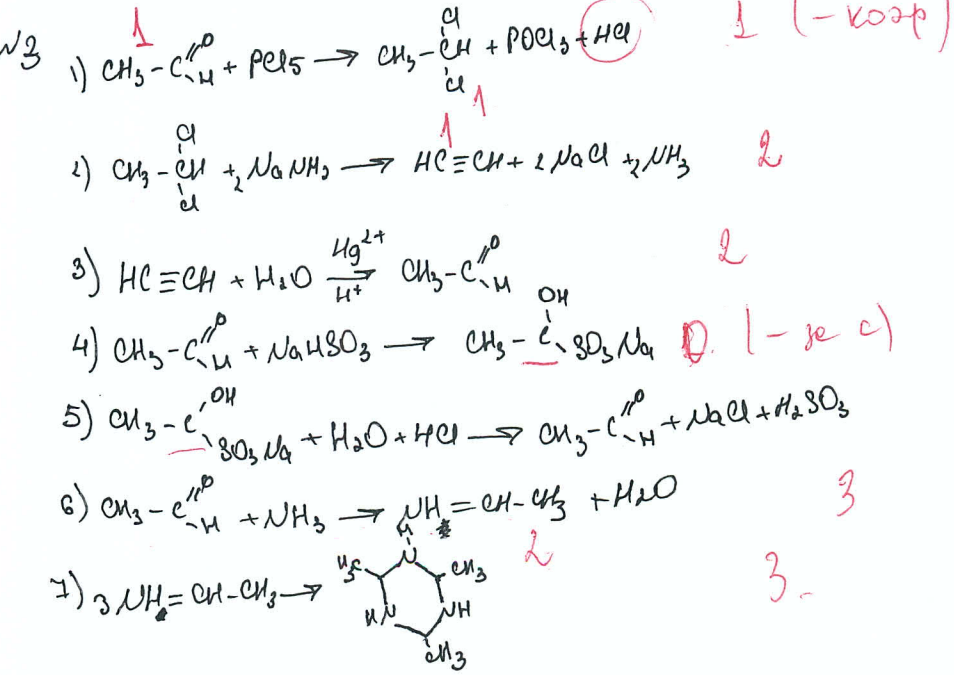 №3
1 1 (- коэф)
1) CH3-C(=O)-H + PCl5 → CH3-CH(Cl)-Cl + POCl3 + HCl
1
2) CH3-CH(Cl)-Cl + 2 NaNH2 → HC≡CH + 2 NaCl + 2 NH3 2
1
3) HC≡CH + H2O →(Hg2+, H+) CH3-C(=O)-H 2
4) CH3-C(=O)-H + NaHSO3 → CH3-C(OH)-SO3Na 0. (- за с)
5) CH3-C(OH)-SO3Na + H2O + HCl → CH3-C(=O)-H + NaCl + H2SO3
6) CH3-C(=O)-H + NH3 → NH=CH-CH3 + H2O 3
2
7) 3 NH=CH-CH3 → H N H3C CH3 HN NH CH3 3-